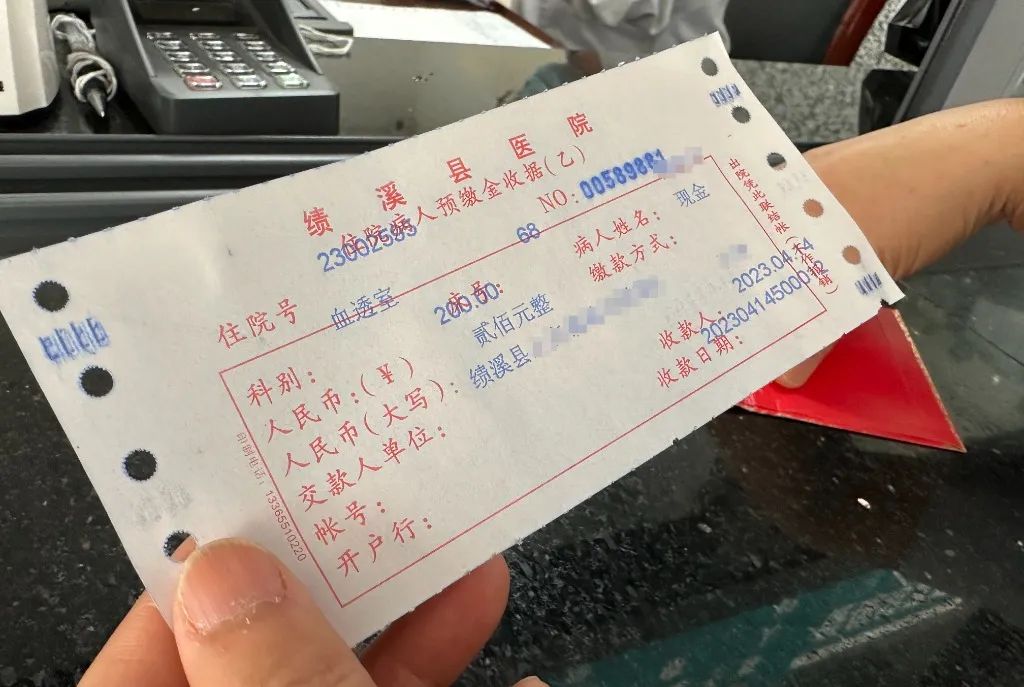 绩溪县医院
住院病人预缴金收据(乙)
NO: 00589881
住院号 23002595 床号: 68 病人姓名:
科别: 血透室 缴款方式: 现金
人民币:(¥) 200.00
人民币(大写): 贰佰元整
交款人单位: 绩溪县
帐号: 收款人:
开户行: 收款日期: 2023.04.14
出院凭此联结帐(不作报销)
印制电话: 13365510220